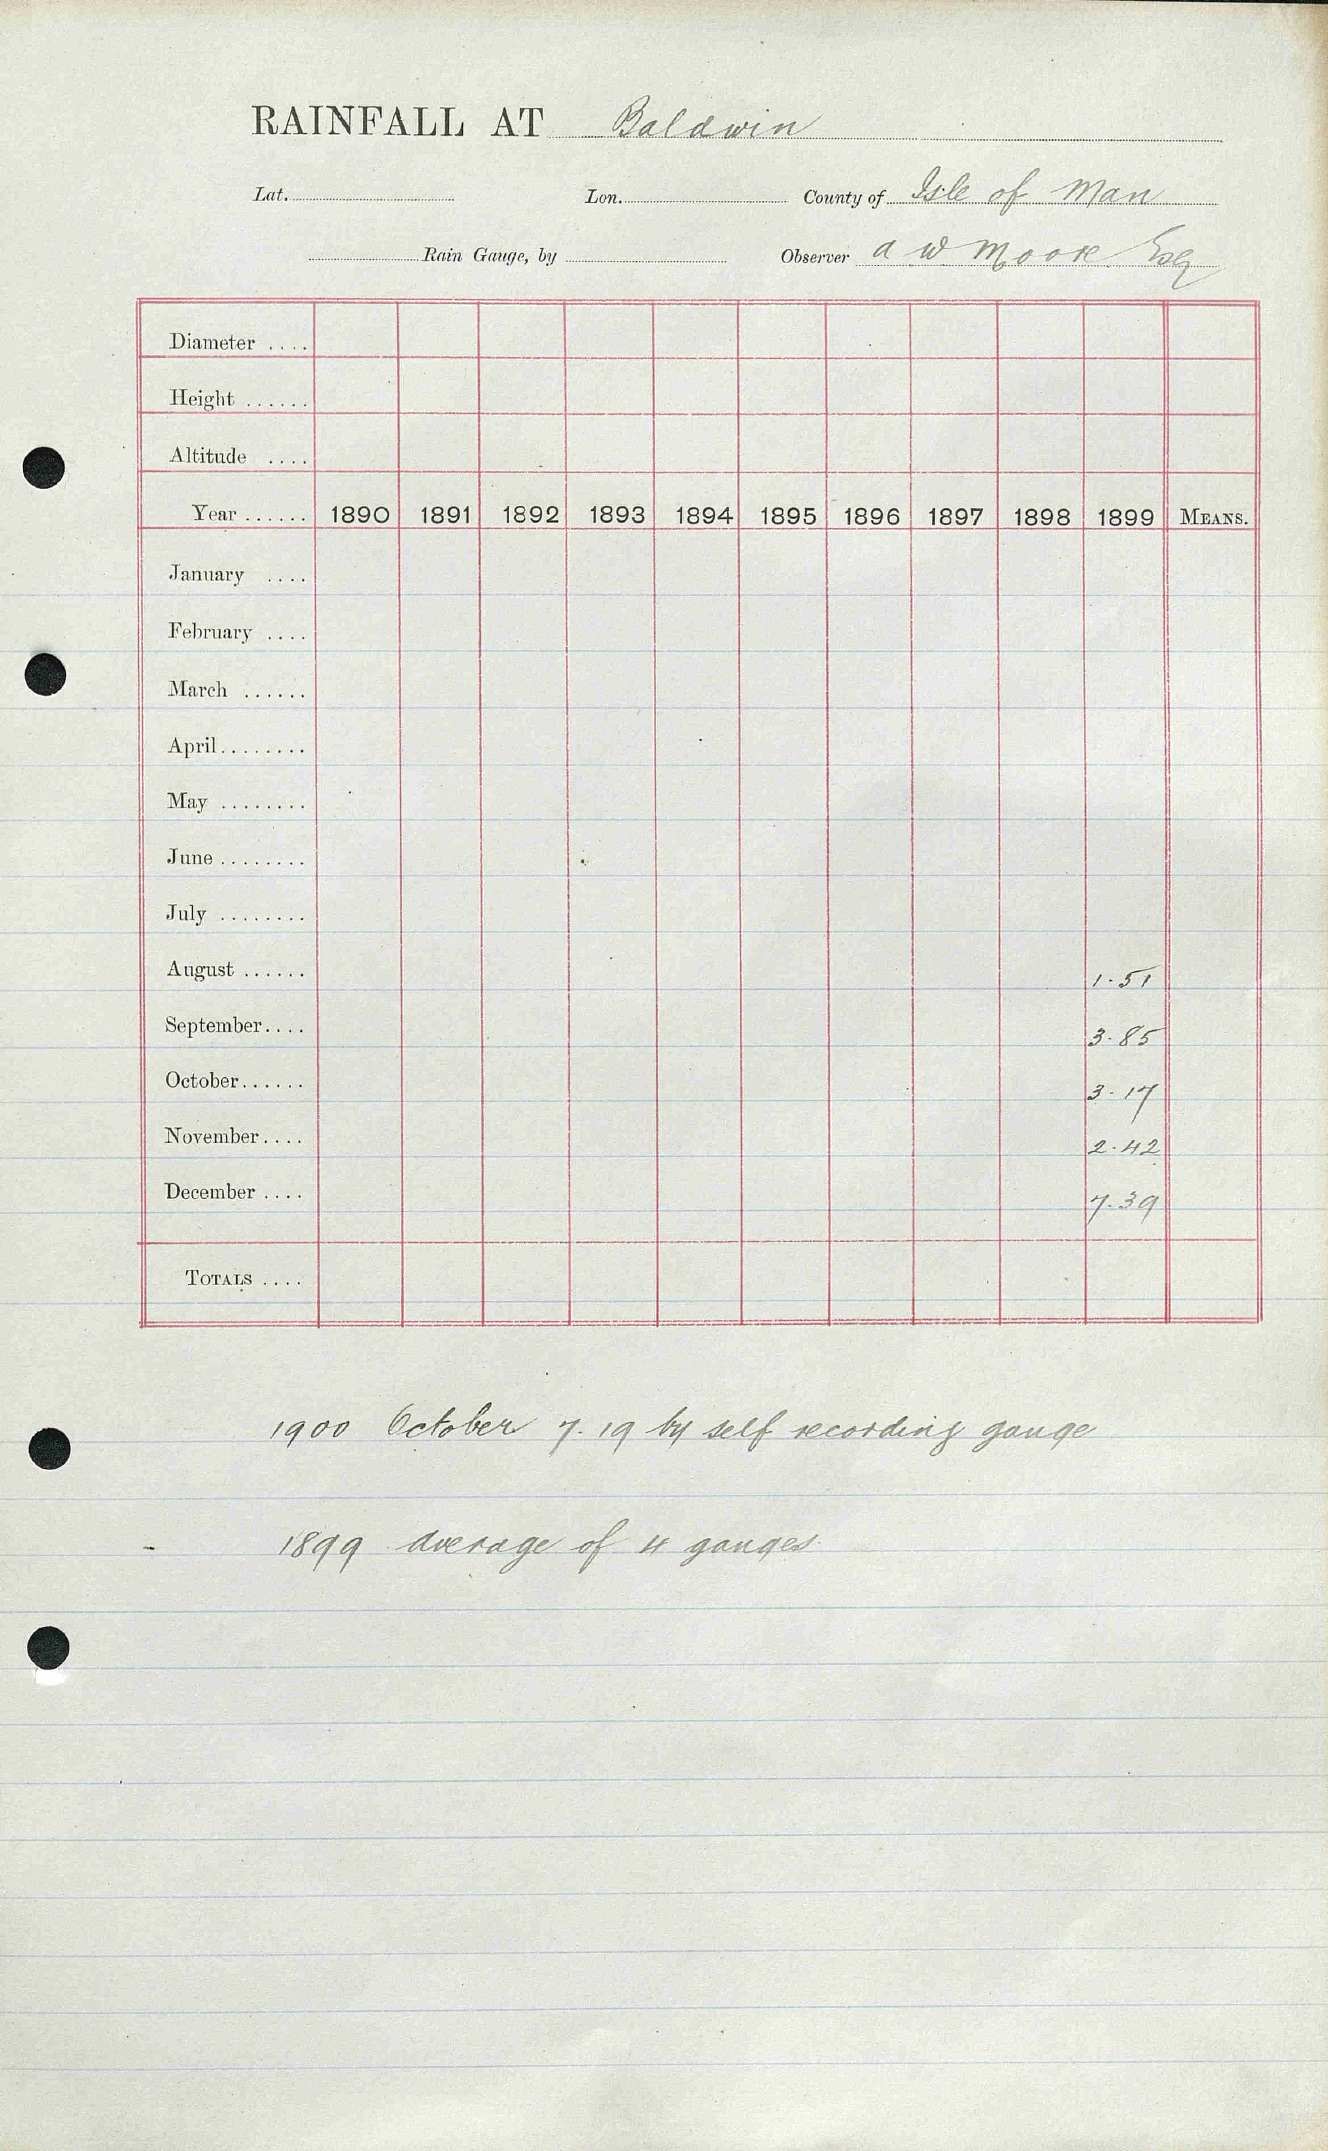 RAINFALL AT Baldwin
Lat. Lon. County of Isle of Man
Rain Gauge, by Observer A W Moore Esq
Diameter ....
Height ......
Altitude ....
Year ...... 1890 1891 1892 1893 1894 1895 1896 1897 1898 1899 MEANS.
January ....
February ....
March ......
April ........
May ........
June ........
July ........
August ...... 1.51
September .... 3.85
October ...... 3.17
November .... 2.42
December .... 7.39
TOTALS ....
1900 October 7.19 by self recording gauge
1899 average of 4 gauges